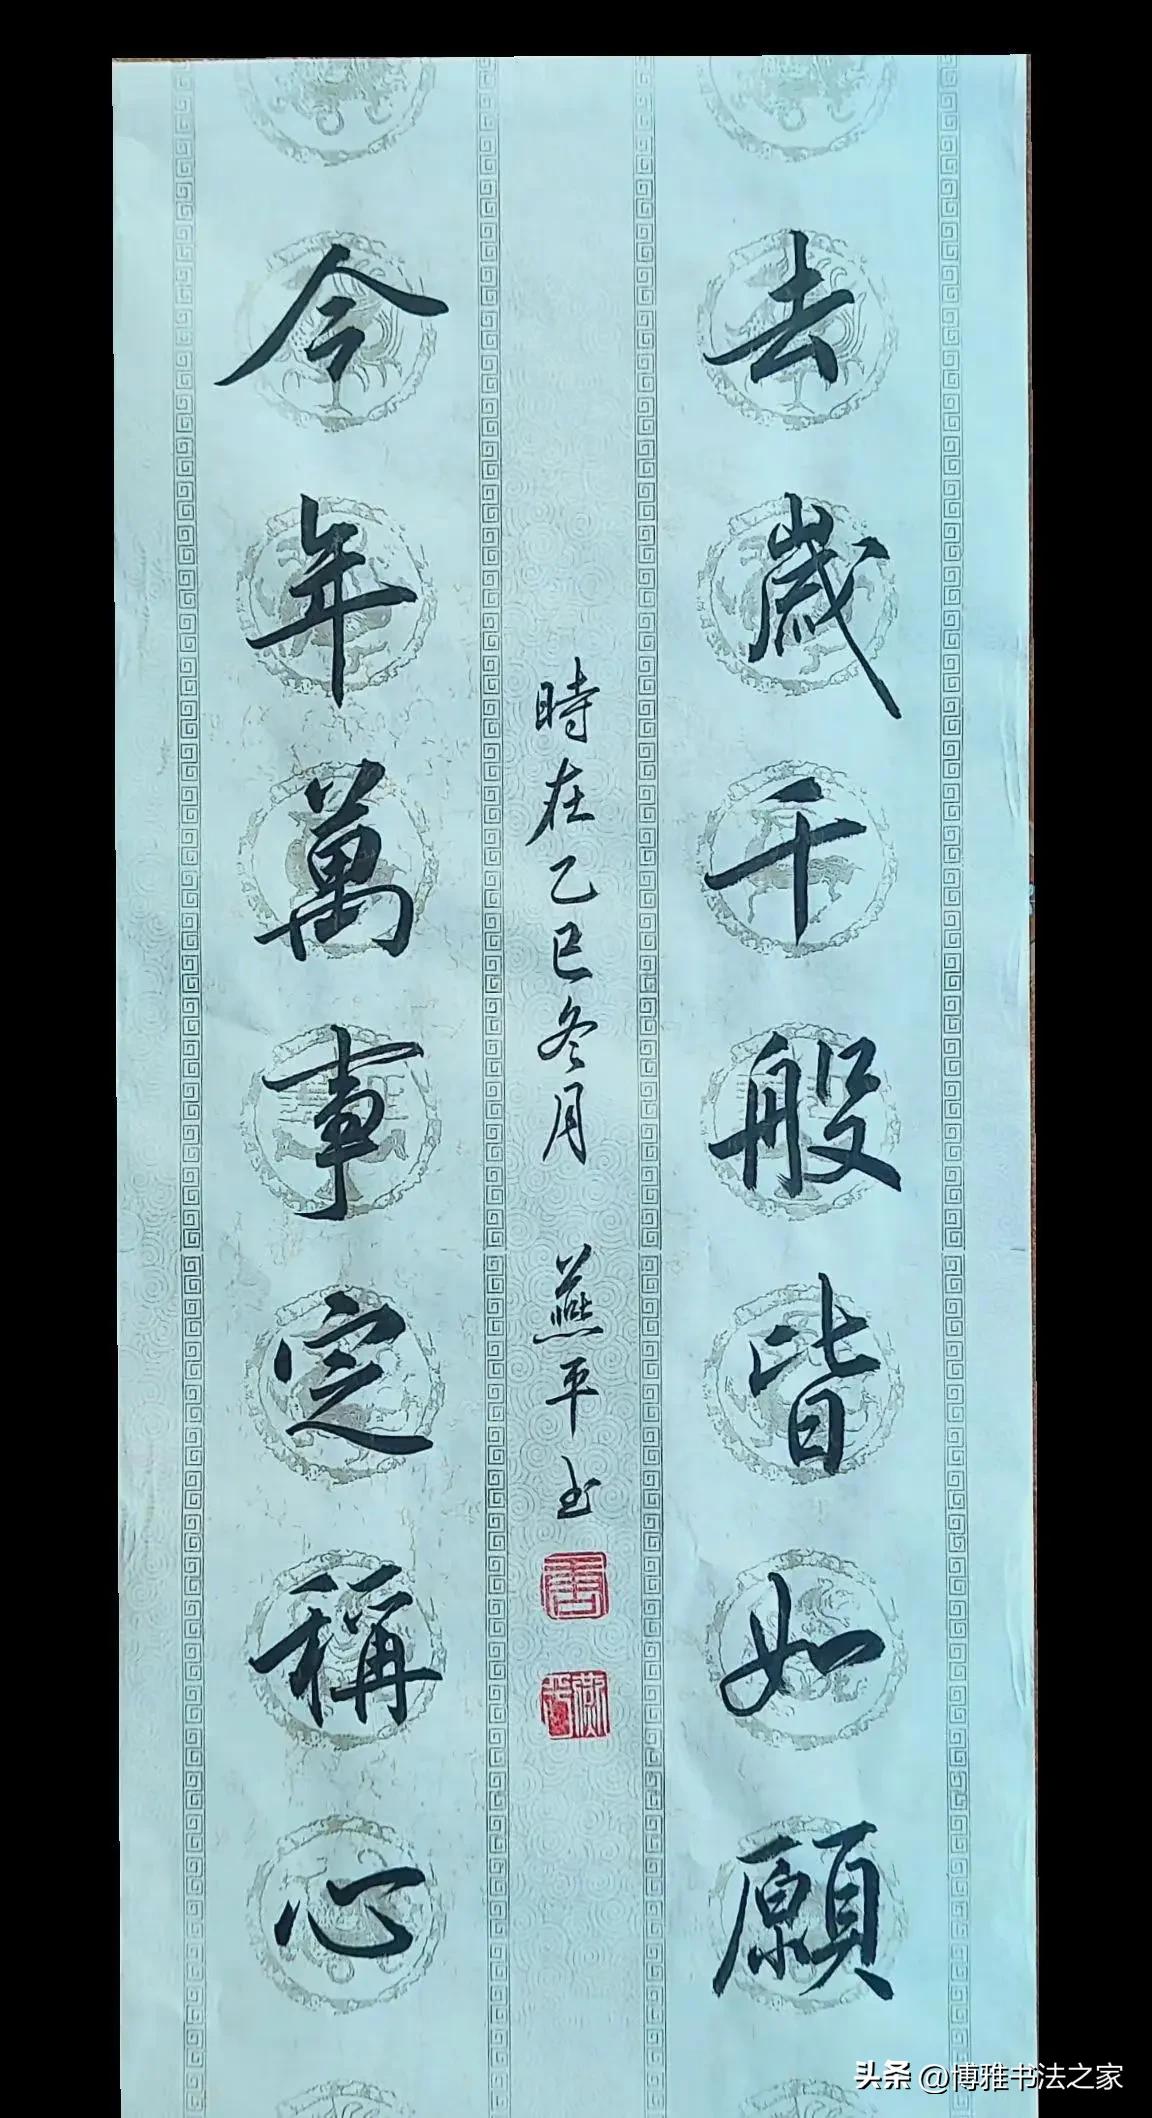 去歲千般皆如願
今年萬事定稱心
時在乙巳冬月 燕平书
头条 @博雅书法之家